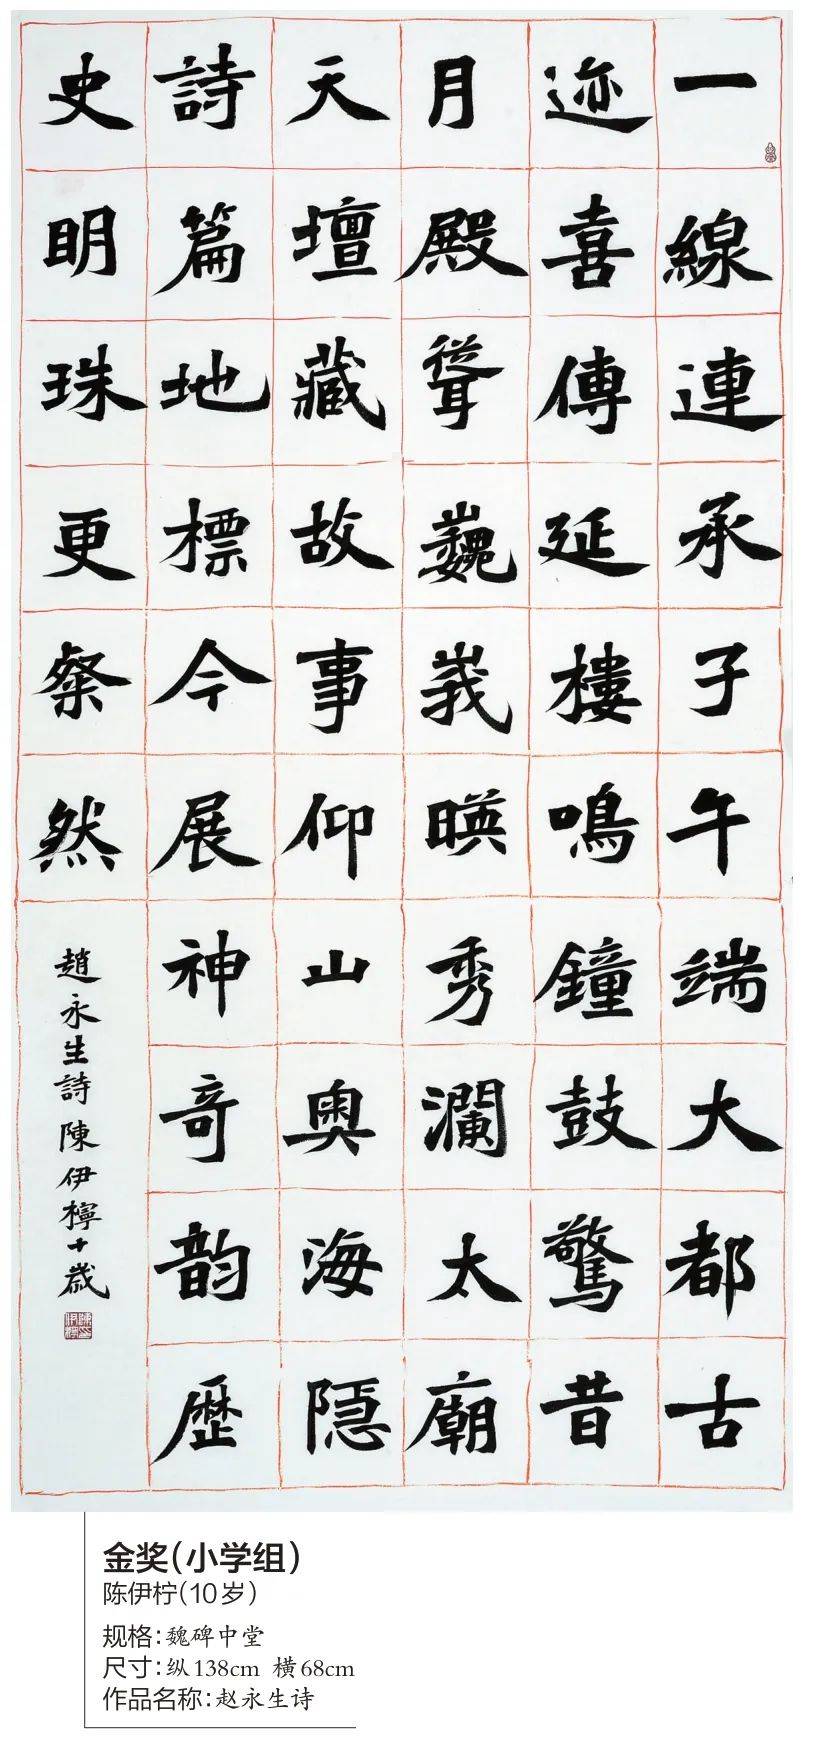 一線連承子午端大都古
迹喜傳延樓鳴鐘鼓驚昔
月殿聳巍峩暎秀瀾太廟
天壇藏故事仰山奥海隠
詩篇地標今展神奇韵歷
史明珠更粲然
趙永生詩 陳伊檸十歲
金奖(小学组)
陈伊柠(10岁)
规格:魏碑中堂
尺寸:纵138cm 横68cm
作品名称:赵永生诗